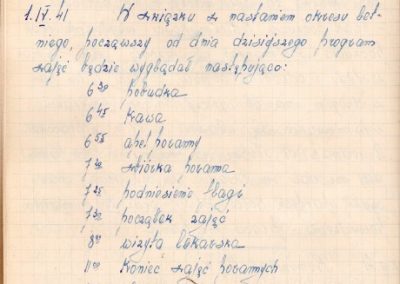 1.IV.41 W związku z nastaniem okresu let-
niego, począwszy od dnia dzisiejszego program
zajęć będzie wyglądał następująco:
6 30 pobudka
6 45 kawa
6 55 apel poranny
zbiórka poranna
7 25 podniesienie flagi
7 30 początek zajęć
8 00 wizyta lekarska
11 00 koniec zajęć porannych